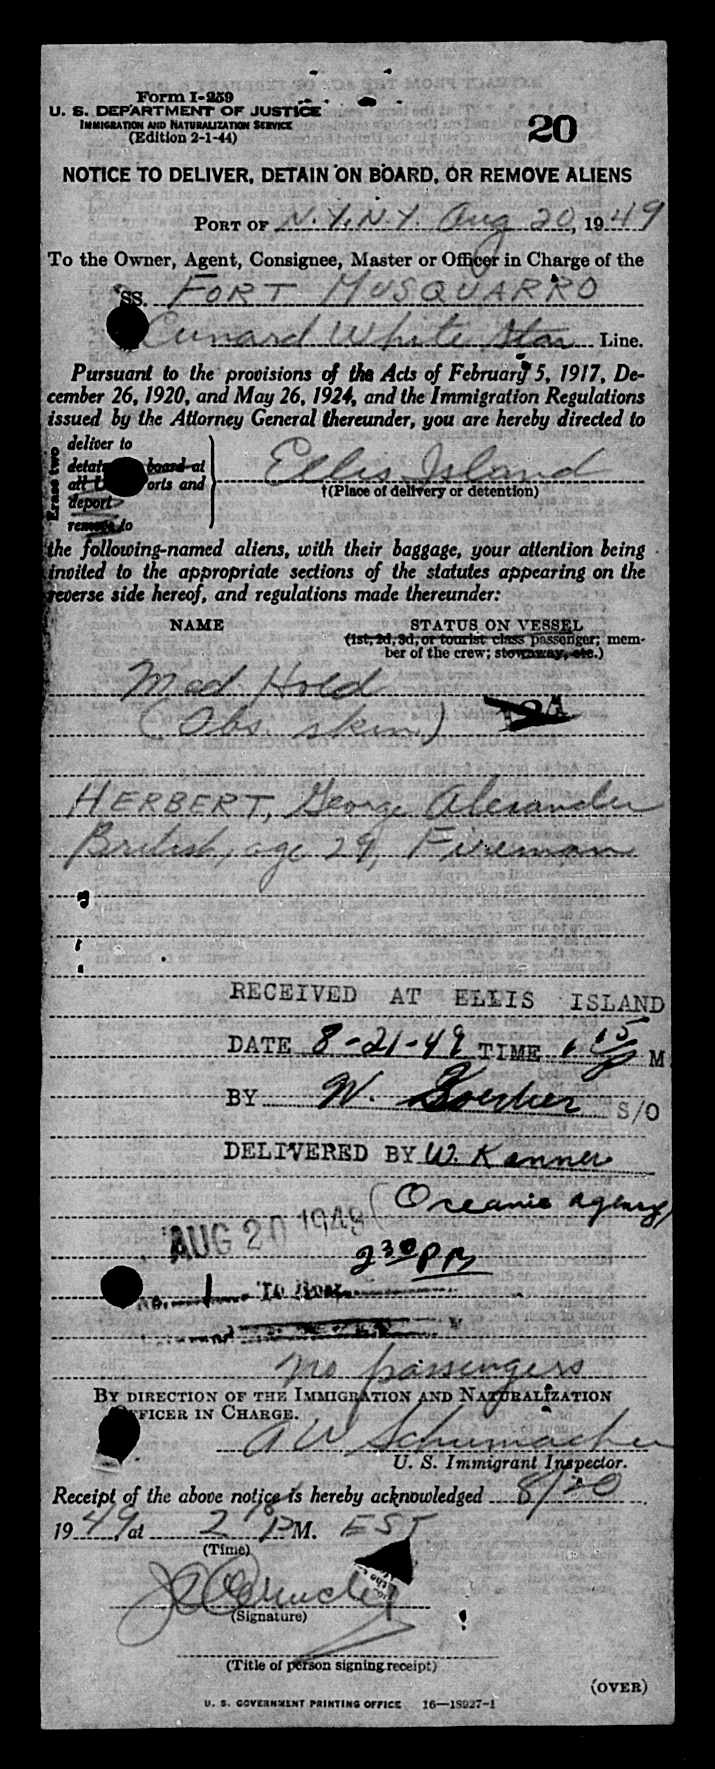 Form I-259
U. S. DEPARTMENT OF JUSTICE
IMMIGRATION AND NATURALIZATION SERVICE
(Edition 2-1-44)
20
NOTICE TO DELIVER, DETAIN ON BOARD, OR REMOVE ALIENS
PORT OF N.Y.N.Y. Aug 20, 1949
To the Owner, Agent, Consignee, Master or Officer in Charge of the
SS. FORT MUSQUARRO
Cunard White Star Line.
Pursuant to the provisions of the Acts of February 5, 1917, De-
cember 26, 1920, and May 26, 1924, and the Immigration Regulations
issued by the Attorney General thereunder, you are hereby directed to
Erase two
deliver to
detain board at
all orts and
deport
remove to
Ellis Island
†(Place of delivery or detention)
the following-named aliens, with their baggage, your attention being
invited to the appropriate sections of the statutes appearing on the
reverse side hereof, and regulations made thereunder:
NAME STATUS ON VESSEL
(1st, 2d, 3d, or tourist class passenger; mem-
ber of the crew; stowaway, etc.)
Med Hold
(Obs. skin.)
HERBERT, George Alexander
British, age 29, Fireman
RECEIVED AT ELLIS ISLAND
DATE 8-21-49 TIME 1 15 P M
BY W. S/O
DELIVERED BY W. Kenner
(Oceanic Agency)
AUG 20 1949
2 30 PM
No. 1 To
no passengers
BY DIRECTION OF THE IMMIGRATION AND NATURALIZATION
OFFICER IN CHARGE.
A W Schumacher
U. S. Immigrant Inspector.
Receipt of the above notice is hereby acknowledged 8/20
1949 at 2 18 PM. EST
(Time)
(Signature)
(Title of person signing receipt)
(OVER)
U. S. GOVERNMENT PRINTING OFFICE 16—18927-1